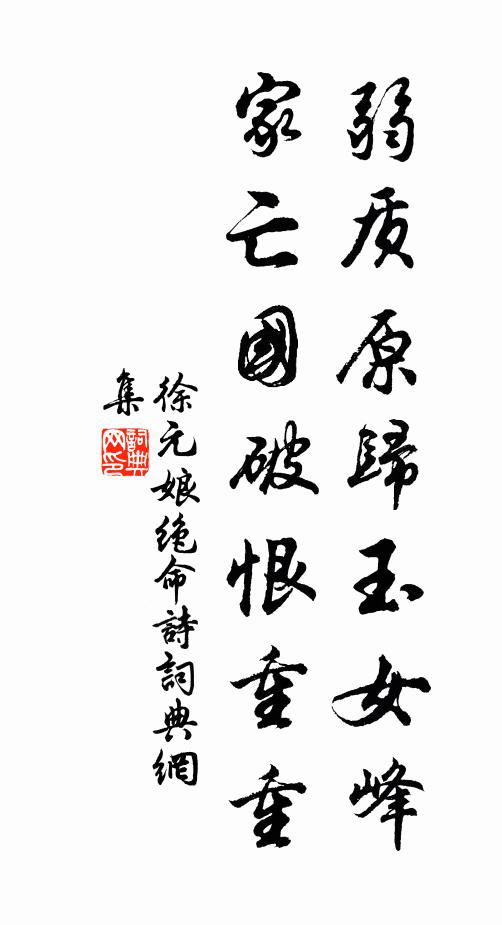 弱质原歸玉女峰
家亡國破恨重重
徐元娘绝命詩詞典網
集
詞典網印